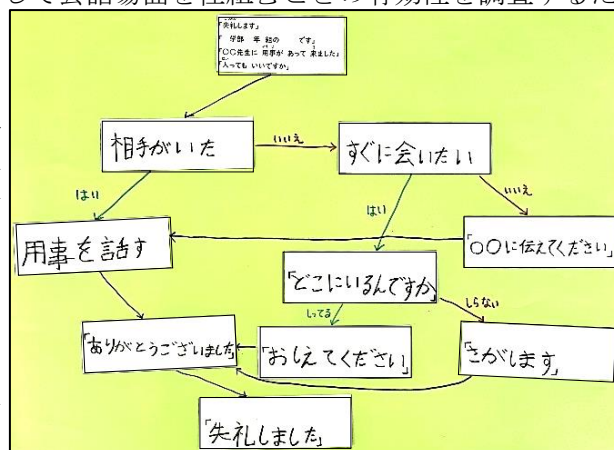 して会話場面を仕組むことの有効性を調査するた
「失礼します」
学部 年 組の です」
「○○先生に 用事が あって 来ました」
「入っても いいですか」
相手がいた
いいえ
すぐに会いたい
はい
はい
いいえ
用事を話す
「○○に伝えてください」
「どこにいるんですか」
しってる
しらない
「ありがとうございました」
「おしえてください」
「さがします」
「失礼しました」